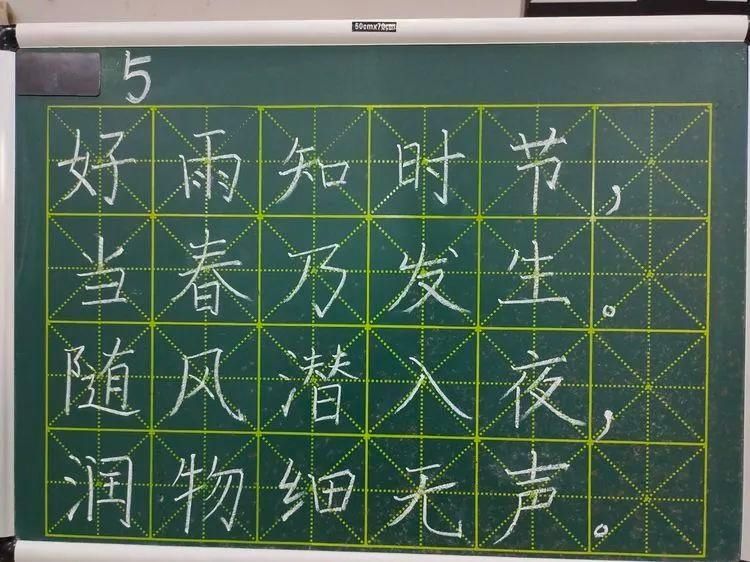 50cmx70cm
5
好雨知时节，
当春乃发生。
随风潜入夜，
润物细无声。